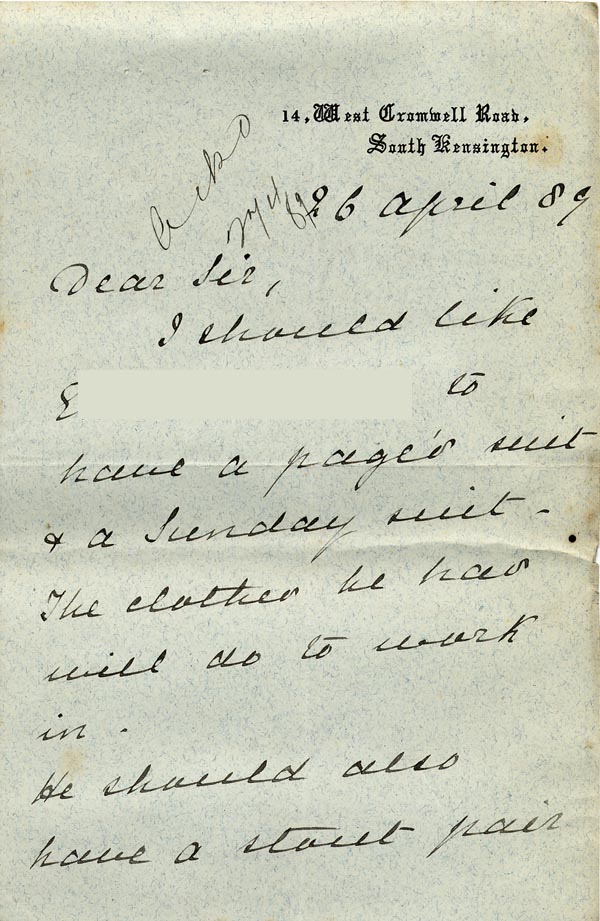 14, West Cromwell Road.
South Kensington.
26 April 89
Dear Sir,
I should like
E to
have a page's suit
& a Sunday suit -
The clothes he has
will do to work
in.
He should also
have a stout pair